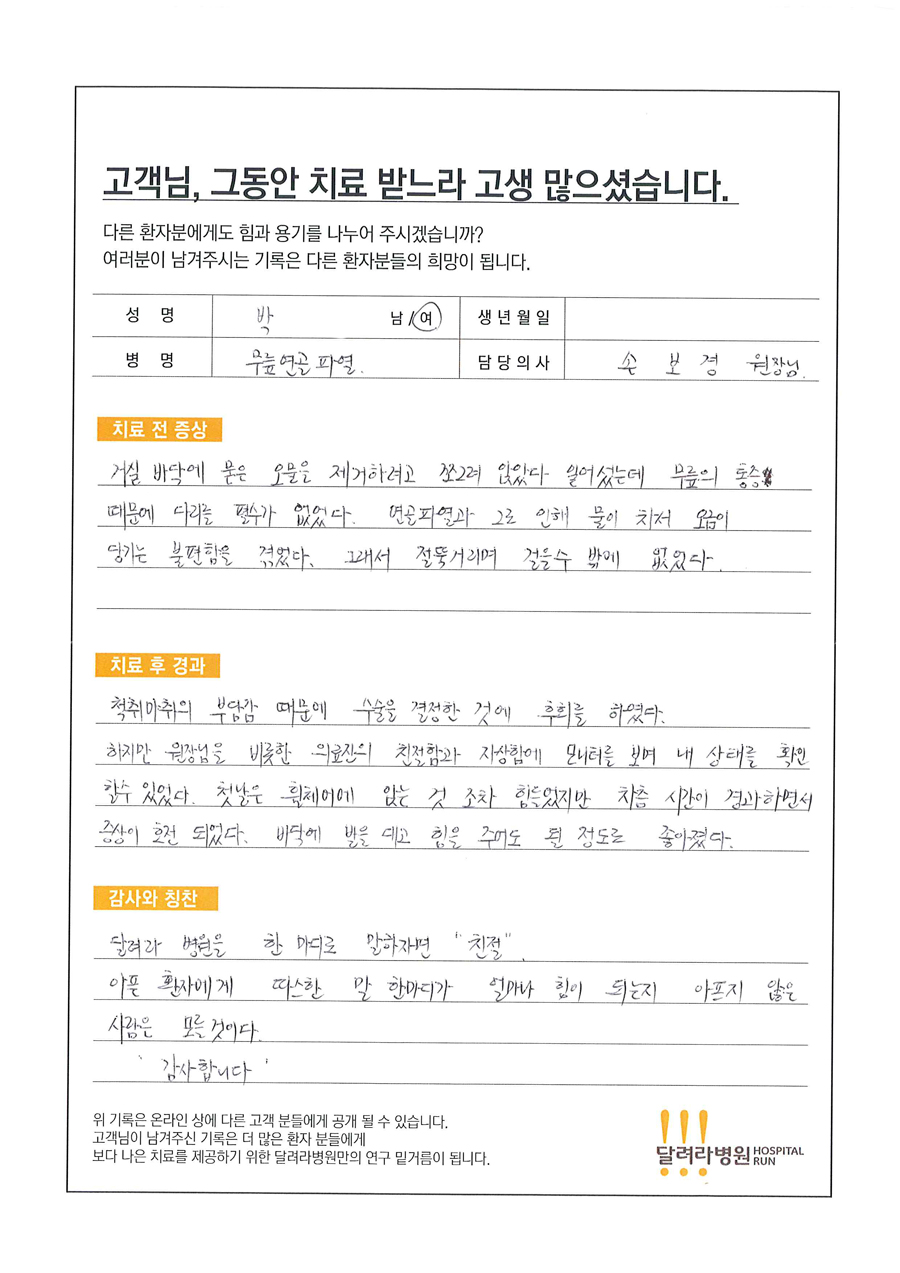 고객님, 그동안 치료 받느라 고생 많으셨습니다.
다른 환자분에게도 힘과 용기를 나누어 주시겠습니까?
여러분이 남겨주시는 기록은 다른 환자분들의 희망이 됩니다.
성 명 박 남 / 여 생년월일
병 명 무릎연골파열. 담당의사 손 보 경 원장님.
치료 전 증상
거실 바닥에 묻은 오물을 제거하려고 쪼그려 앉았다 일어섰는데 무릎의 통증
때문에 다리를 펼수가 없었다. 연골파열과 그로 인해 물이 차서 오금이
당기는 불편함을 겪었다. 그래서 절뚝거리며 걸을수 밖에 없었다.
치료 후 경과
척취마취의 부담감 때문에 수술을 결정한 것에 후회를 하였다.
하지만 원장님을 비롯한 의료진의 친절함과 자상함에 모니터를 보며 내 상태를 확인
할수 있었다. 첫날은 휠체어에 앉는 것 조차 힘들었지만 차츰 시간이 경과하면서
증상이 호전 되었다. 바닥에 발을 대고 힘을 주어도 될 정도로 좋아졌다.
감사와 칭찬
달려라 병원을 한 마디로 말하자면 "친절".
아픈 환자에게 따스한 말 한마디가 얼마나 힘이 되는지 아프지 않은
사람은 모를것이다.
' 감사합니다 '
위 기록은 온라인 상에 다른 고객 분들에게 공개 될 수 있습니다.
고객님이 남겨주신 기록은 더 많은 환자 분들에게
보다 나은 치료를 제공하기 위한 달려라병원만의 연구 밑거름이 됩니다.
달려라병원 HOSPITAL RUN